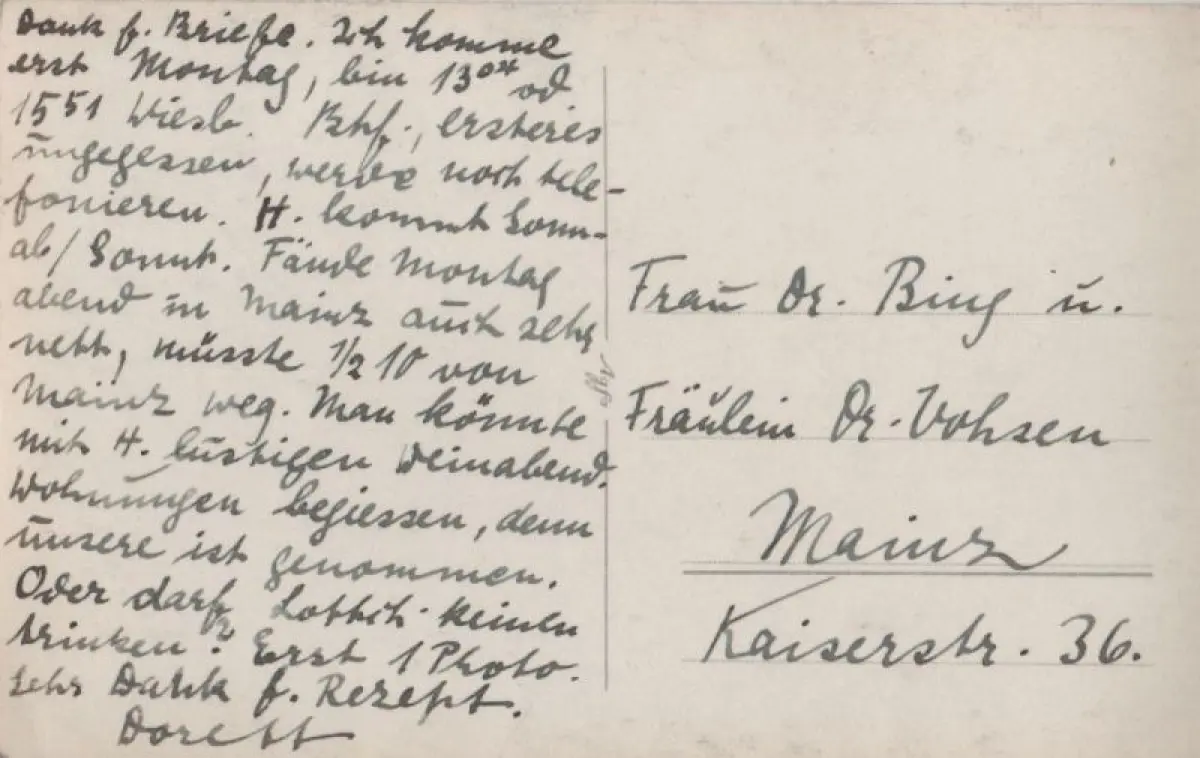 Dank f. Briefe. Ich komme
erst Montag, bin 13⁰⁴ od.
15⁵¹ Wiesb. Bhf., ersteres
ungegessen, werde noch tele-
fonieren. H. kommt Sonn-
ab/Sonnt. Fände Montag
abend in Mainz auch sehr
nett, müsste 1/2 10 von
Mainz weg. Man könnte
mit H. lustigen Weinabend.
Wohnungen begiessen, denn
unsere ist genommen.
Oder darf Lottch. keinen
trinken? Erst 1 Photo.
Sehr Dank f. Rezept.
Dorett
Frau Dr. Bing u.
Fräulein Dr. Vohsen
Mainz
Kaiserstr. 36.